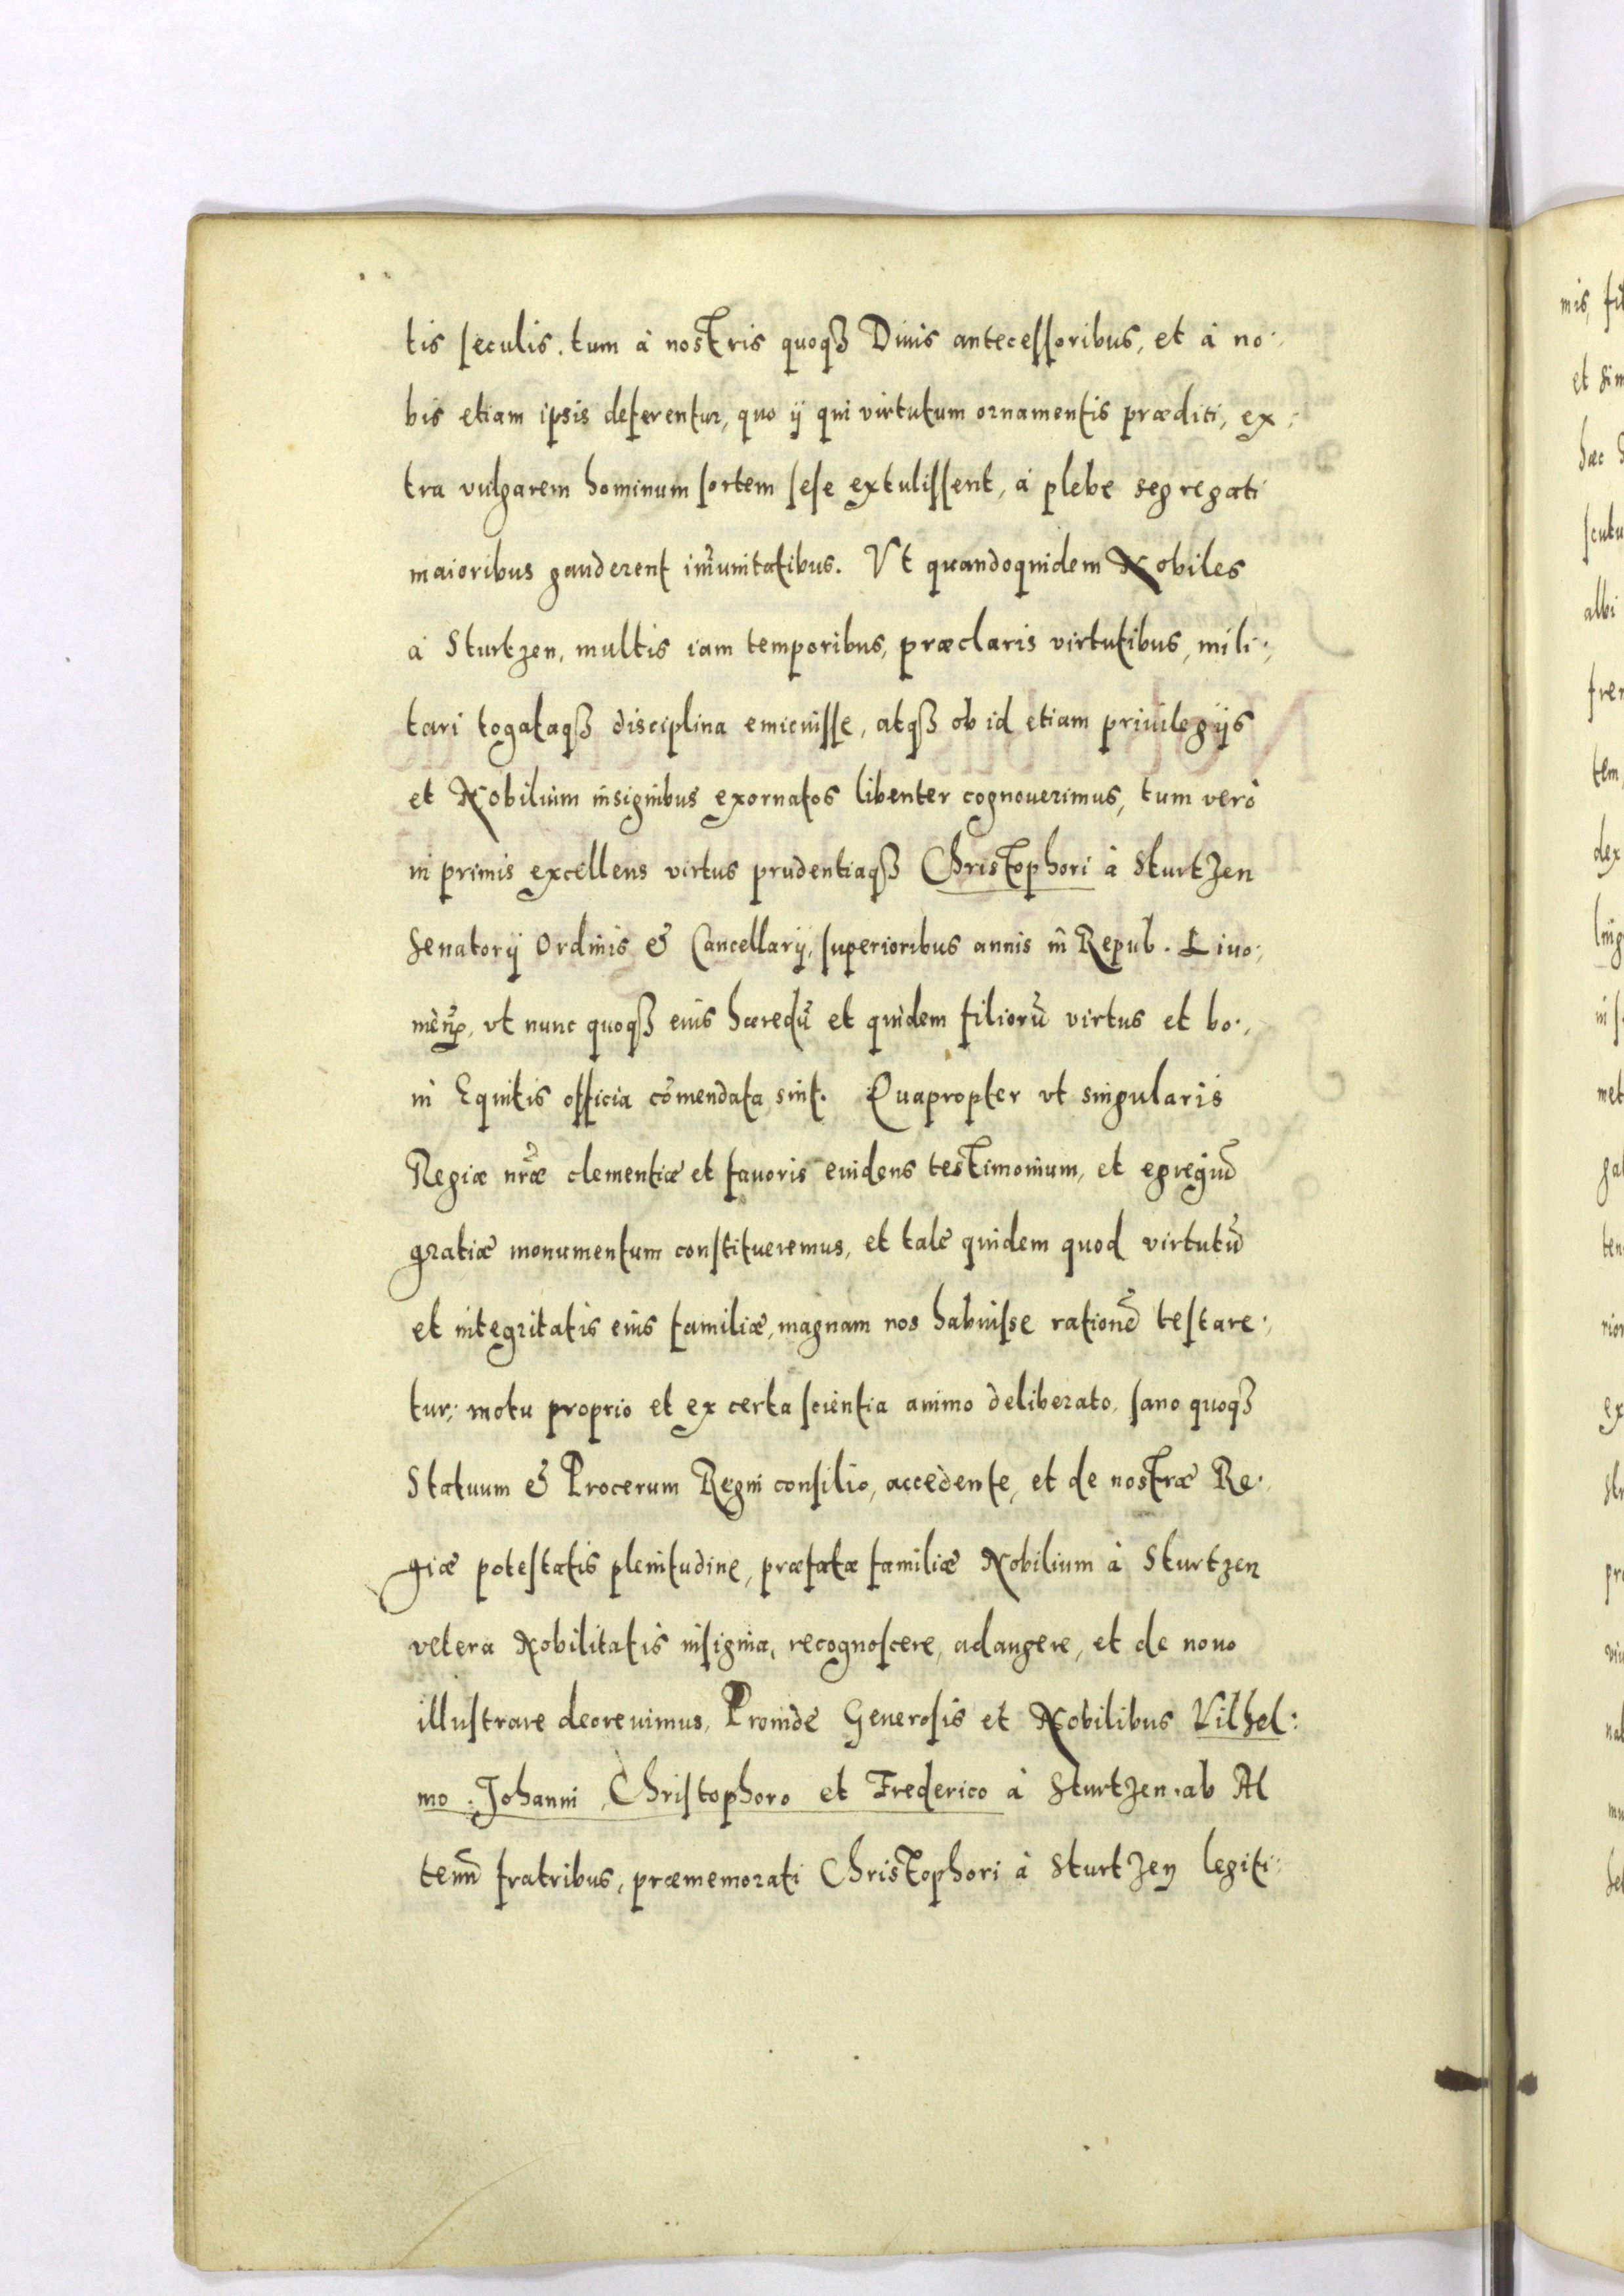 tis seculis. tum à nostris quoqꝫ Diuis antecessoribus, et à no:
bis etiam ipsis deferentur, quo ij qui virtutum ornamentis præditi, ex:
tra vulgarem hominum sortem sese extulissent, à plebe segregati
maioribus gauderent im̃unitatibus. Vt quandoquidem Nobiles
à Sturtzen, multis iam temporibus, præclaris virtutibus, mili:
tari togataqꝫ disciplina emicuisse, atqꝫ ob id etiam priuilegijs
et Nobilium insignibus exornatos libenter cognouerimus, tum verò
in primis excellens virtus prudentiaqꝫ Christophori à Sturtzen
Senatorij Ordinis & Cancellarij, superioribus annis in Repub. Liuo:
vt nunc quoqꝫ eius hæredũ et quidem filiorũ virtus et bo:
ni Equitis officia cõmendata sint. Quapropter vt singularis
Regiæ nr̃æ clementiæ et fauoris euidens testimonium, et egregiũ
gratiæ monumentum constitueremus, et tale quidem quod virtutũ
et integritatis eius familiæ, magnam nos habuisse rationẽ testare:
tur; motu proprio et ex certa scientia animo deliberato, sano quoqꝫ
Statuum & Procerum Regni consilio, accedente, et de nostræ Re:
giæ potestatis plenitudine, præfatæ familiæ Nobilium à Sturtzen
vetera Nobilitatis insignia, recognoscere, adaugere, et de nouo
illustrare decreuimus, Proinde Generosis et Nobilibus Vilhel:
mo. Johanni, Christophoro et Frederico à Sturtzen. ab Al
tenñ fratribus, præmemorati Christophori à Sturtzen legiti:
mis,
et
hæc
albi
tem,